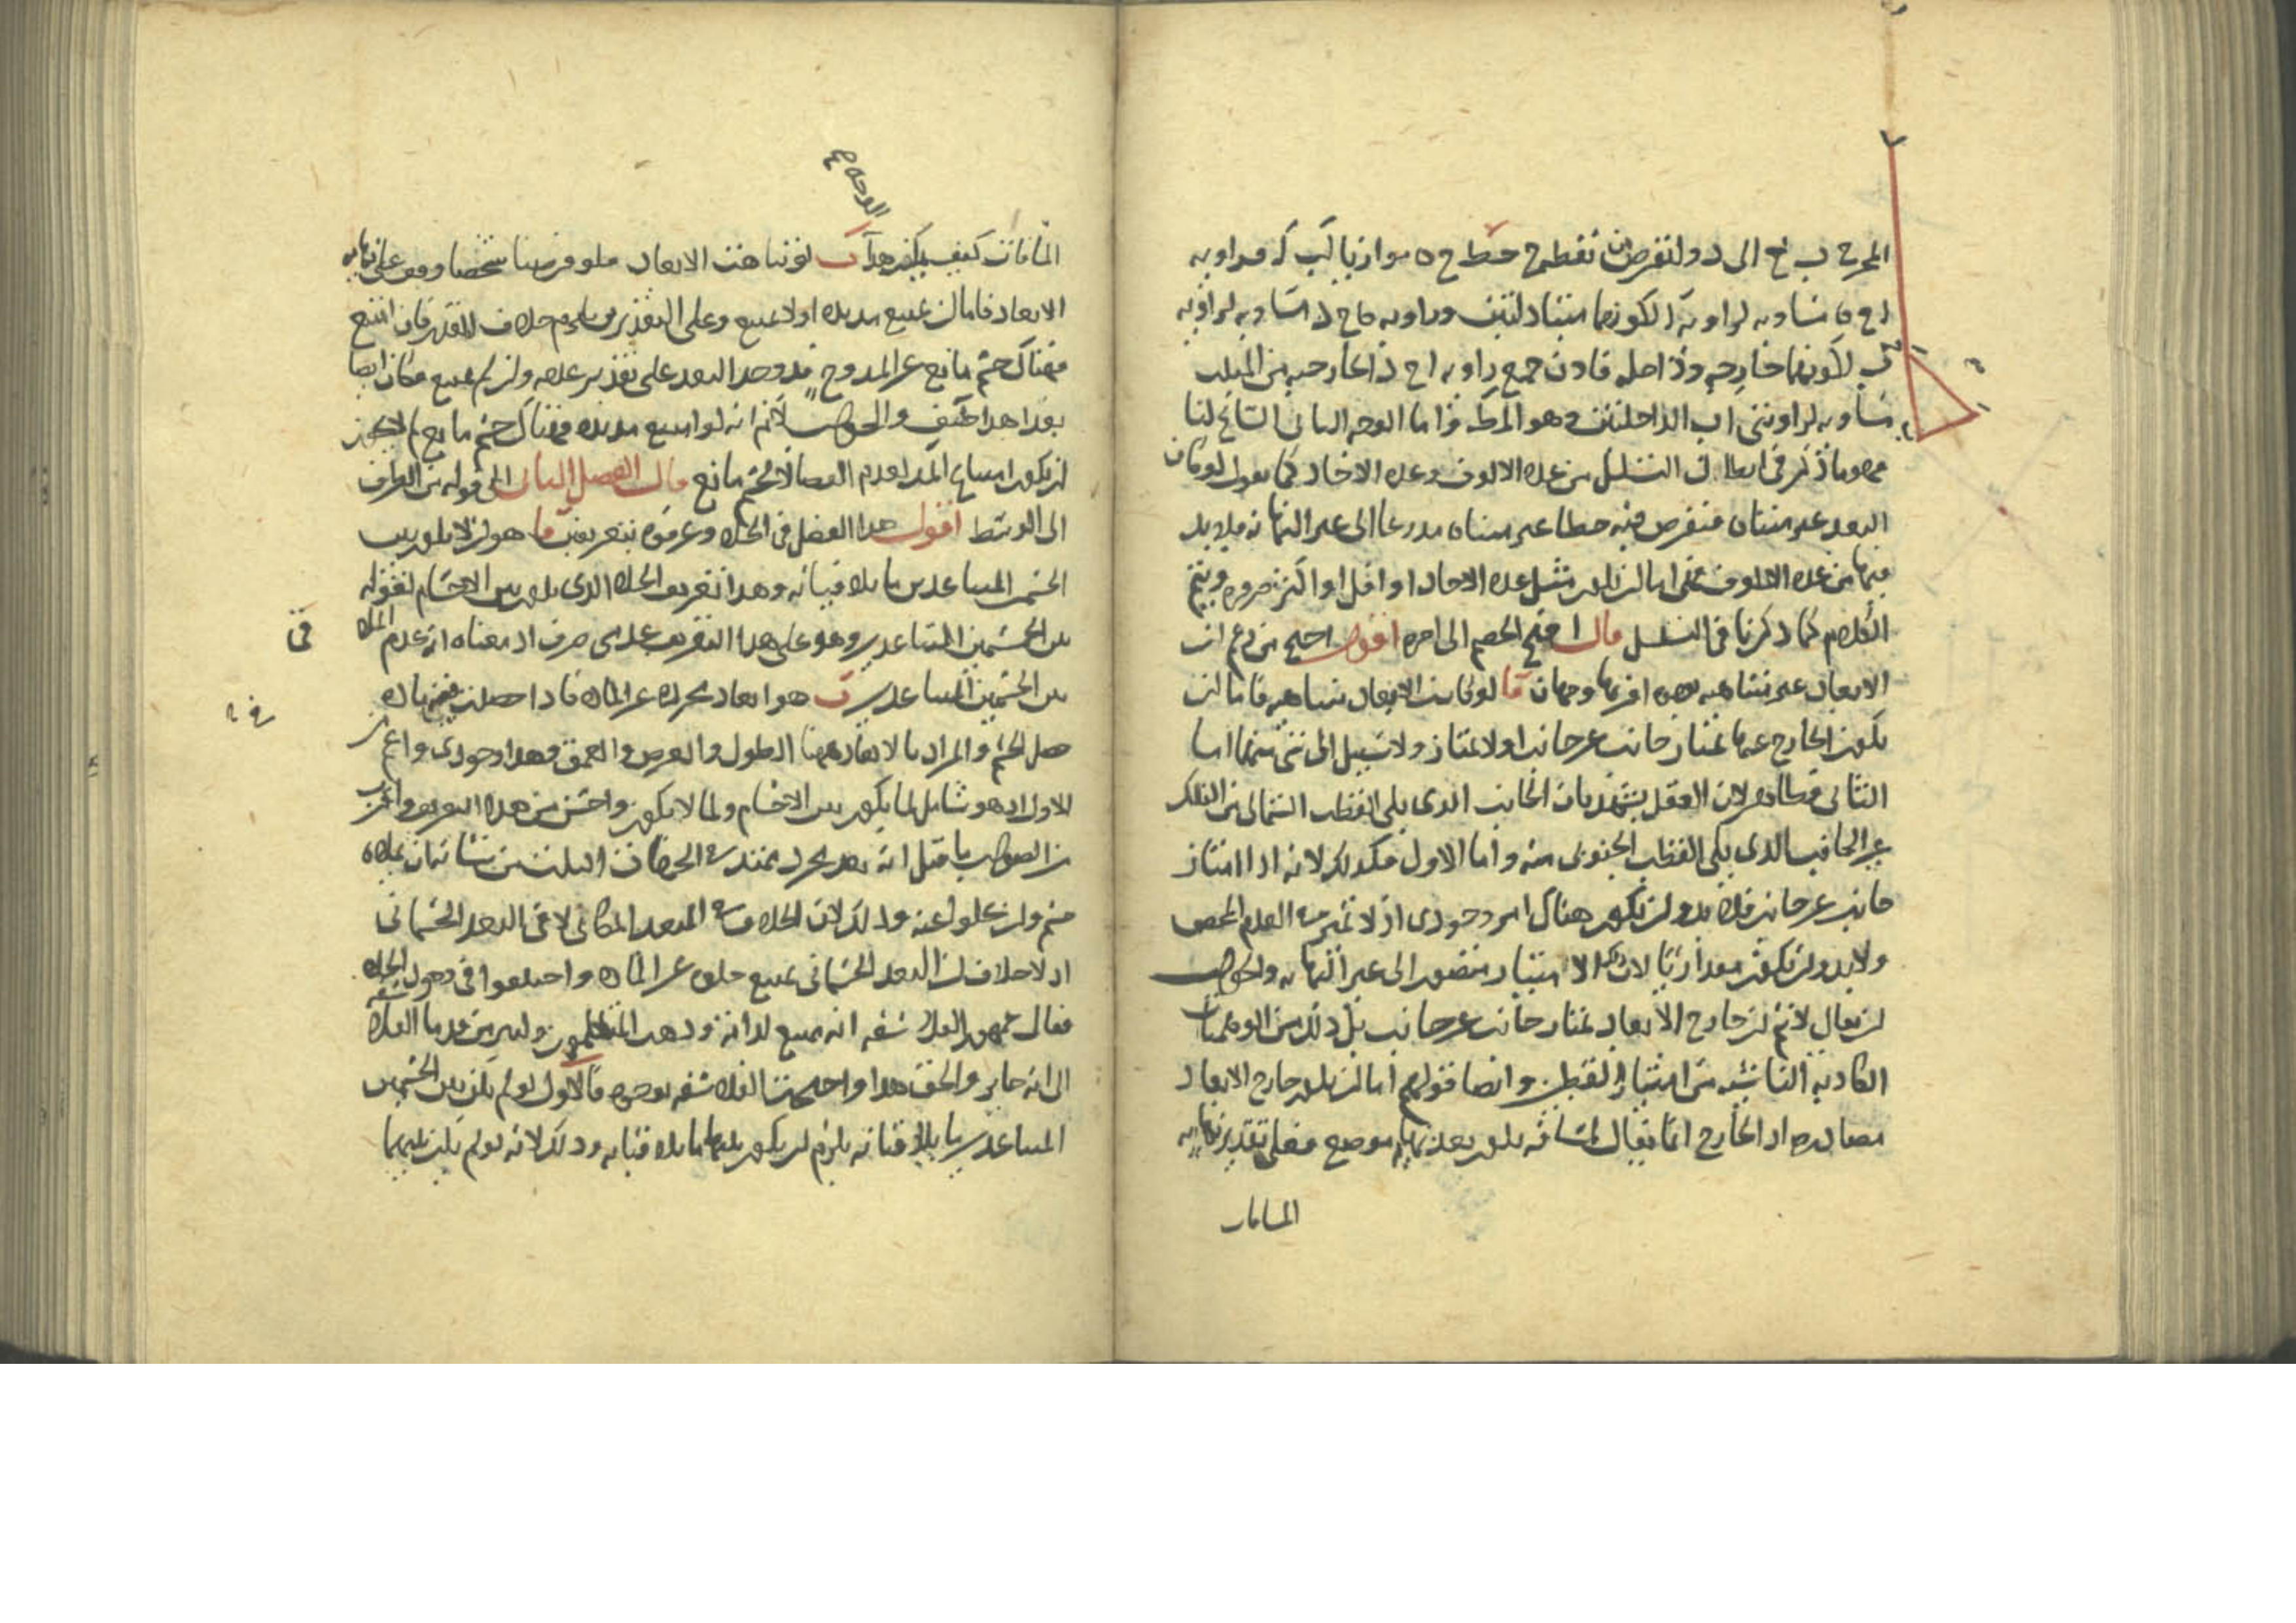 المخرج ب ج الى د ولنفرض من نقطة ج خط ج ه موازيا لب ا فزاوية
ا ج ه مساوية لزاوية ا لكونهما متبادلتين وزاوية ه ج د مساوية لزاوية
ب لكونهما خارجة وداخلة فاذن جميع زاوية ا ج د الخارجة من المثلث
مساوية لزاويتى ا ب الداخلتين وهو المط واما الوجه الثانى السانح لنا
فهو ما ذكر فى ابطال التسلسل من عدة الالوف وعدة الاحاد كما نقول لو كان
البعد غير متناه فنفرض فيه خطا غير متناه الى غير النهاية فلابد
فيها من عدة الالوف فهى اما ان تكون مثل عدة الاحاد او اقل او اكثر ضرورة ويتم
الكلام كما ذكرنا فى التسلسل قال احتج الخصم الى اخره اقول احتج من زعم ان
الابعاد غير متناهية بوجوه اقربها وجهان آ لو كانت الابعاد متناهية فاما ان
يكون الخارج عنها يمتاز جانب عن جانب او لا يمتاز ولا سبيل الى شئ منهما اما
الثانى فظاهر لان العقل يشهد بان الجانب الذى يلى القطب الشمالى من الفلك
غير الجانب الذى يلى القطب الجنوبى منه واما الاول فكذلك لانه اذا امتاز
جانب عن جانب فلابد وان يكون هناك امر وجودى اذ لا تميز فى العدم المحض
ولابد وان يكون مقداريا لان الامتياز متصور الى غير النهاية والجواب
ان يقال لا نم ان خارج الابعاد يمتاز جانب عن جانب بل ذلك من الوهميات
الكاذبة الناشئة من امتياز القطبين وايضا قولهم اما ان يكون خارج الابعاد
مصادرة اذ الخارج انما يقال لمسافة تكون بعد نهاية موضع فعلى تقدير نهاية
المسافات
المسافات كيف يكون هذا ب لو تناهت الابعاد فلو فرضنا شخصا وقف على نهاية
الوجه ع
الابعاد فاما ان يمتنع مد يده او لا يمتنع وعلى التقديرين يلزم خلاف المقدر فان امتنع
فهناك جسم مانع عن الخروج فقد وجد البعد على تقدير عدمه وان لم يمتنع فكان ايضا
بعدا هذا خلف والجواب لا نم انه لو امتنع مد يده فهناك جسم مانع لم لا يجوز
ان يكون امتناع المد لعدم الفضا لا لجسم مانع قال الفصل الثانى الى قوله من الطرف
الى الوسط اقول هذا الفصل فى الخلاء وعرفوه بتعريفين آ هو ان لا يكون بين
الجسمين المتباعدين ما يلاقيانه وهذا تعريف الخلاء الذى يكون بين الاجسام لقوله
بين الجسمين المتباعدين وهو على هذا التعريف عدمى صرف اذ معناه ان عدم الملاء
فى
بين الجسمين المتباعدين ب هو ابعاد مجردة عن المادة فاذا حصلت فى مادة
حصل الجسم والمراد بالابعاد هنا الطول والعرض والعمق وهذا وجودى واعم من
الاول اذ هو شامل لما يكون بين الاجسام ولما لا يكون واحسن من هذه التعريف واقرب
من الصواب ما قيل انه بعد مجرد يمتد فى الجهات الثلث من شانه ان يملاه
جسم وان يخلو عنه وذلك لان الخلاء فى البعد المكانى لا فى البعد الجسمانى
اذ لا خلاف ان البعد الجسمانى يمتنع خلوه عن المادة واختلفوا فى وجود الخلاء
فقال جمهور الفلاسفة انه يمتنع لذاته وذهب المتكلمون وكثير من قدما الفلاسفة
الى انه جايز والحق هذا واحتجت الفلاسفة بوجوه آ الاول لو لم يكن بين الجسمين
المتباعدين ما يلاقيانه يلزم ان يكون بينهما ما يلاقيانه وذلك لانه لو لم يكن بينهما